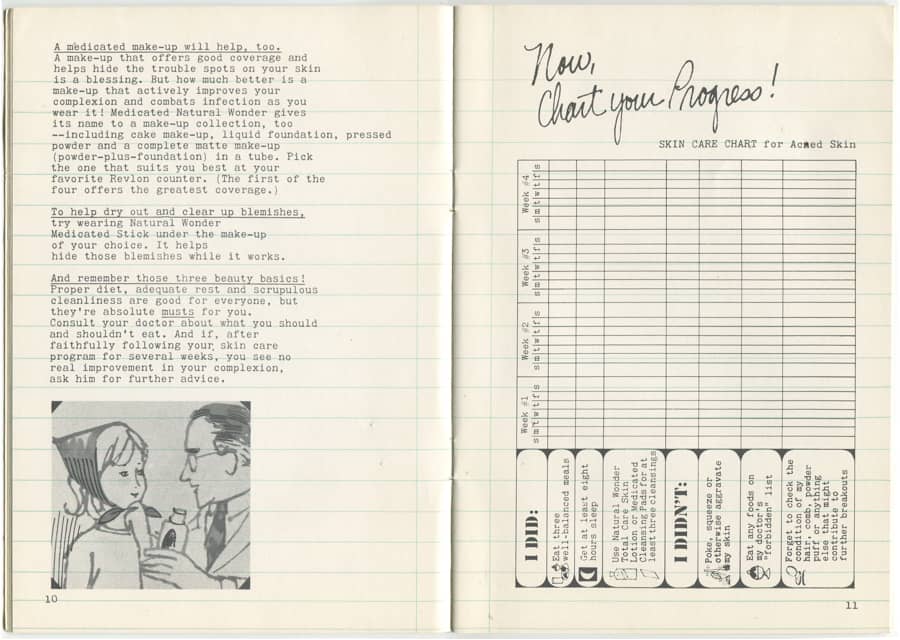 A medicated make-up will help, too.
A make-up that offers good coverage and
helps hide the trouble spots on your skin
is a blessing. But how much better is a
make-up that actively improves your
complexion and combats infection as you
wear it! Medicated Natural Wonder gives
its name to a make-up collection, too
--including cake make-up, liquid foundation, pressed
powder and a complete matte make-up
(powder-plus-foundation) in a tube. Pick
the one that suits you best at your
favorite Revlon counter. (The first of the
four offers the greatest coverage.)
To help dry out and clear up blemishes,
try wearing Natural Wonder
Medicated Stick under the make-up
of your choice. It helps
hide those blemishes while it works.
And remember those three beauty basics!
Proper diet, adequate rest and scrupulous
cleanliness are good for everyone, but
they're absolute musts for you.
Consult your doctor about what you should
and shouldn't eat. And if, after
faithfully following your skin care
program for several weeks, you see no
real improvement in your complexion,
ask him for further advice.
10
Now,
Chart your Progress!
SKIN CARE CHART for Acned Skin
Week #1
s m t w t f s
Week #2
s m t w t f s
Week #3
s m t w t f s
Week #4
s m t w t f s
I DID:
Eat three
well-balanced meals
Get at least eight
hours sleep
Use Natural Wonder
Total Care Skin
Lotion or Medicated
Cleansing Pads for at
least three cleansings
I DIDN'T:
Poke, squeeze or
otherwise aggravate
my skin
Eat any foods on
my doctor's
"forbidden" list
Forget to check the
condition of my
hair, comb, powder
puff or anything
else that might
contribute to
further breakouts
11